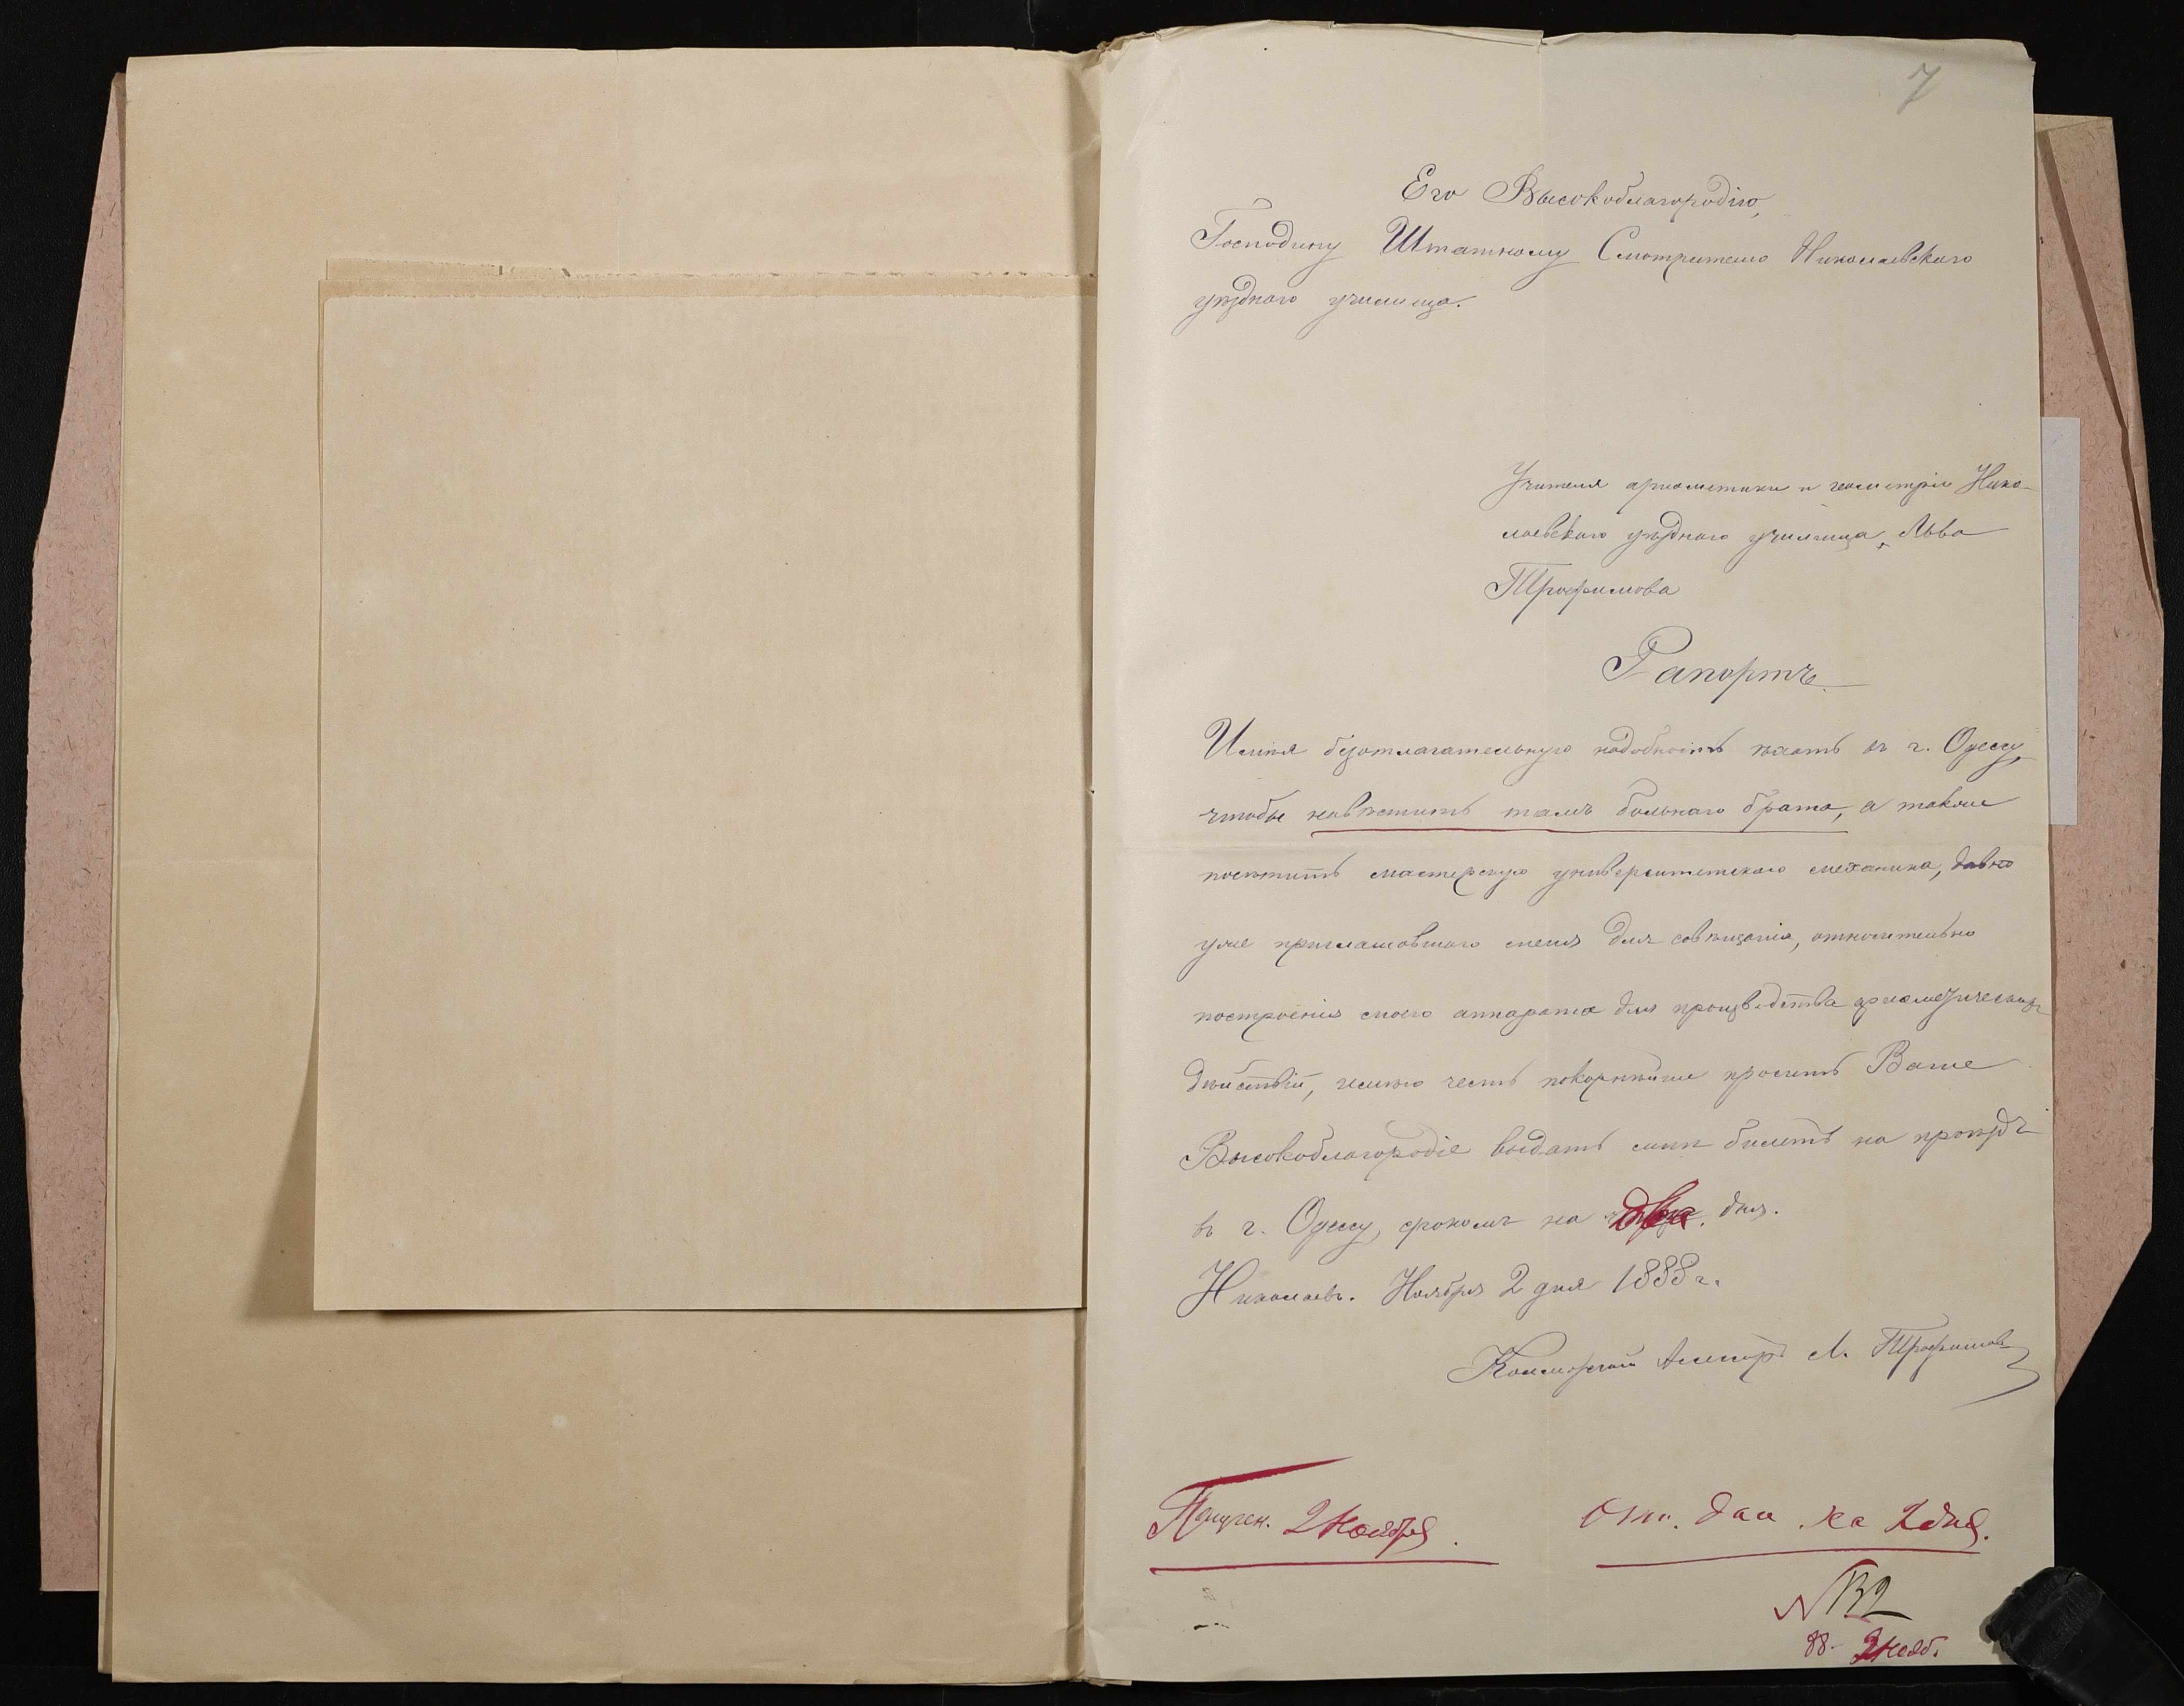 7
Его Высокоблагородію,
Господину Штатному Смотрителю Николаевскаго
уѣзднаго училища.
Учителя ариѳметики и геометріи Нико-
лаевскаго уѣзднаго училища, Льва
Трофимова
Рапортъ.
Имѣя безотлагательную надобность ѣхать въ г. Одессу,
чтобы навѣстить тамъ больнаго брата, а также
посѣтить мастерскую университетскаго механика, давно
уже приглашавшаго меня для совѣщанія, относительно
построенія моего аппарата для производства ариѳметическихъ
дѣйствій, имѣю честь покорнѣйше просить Ваше
Высокоблагородіе выдать мнѣ билетъ на проѣздъ
въ г. Одессу, срокомъ на два дня.
Николаевъ. Ноября 2 дня 1888 г.
Коллежскій Ассесоръ Л. Трофимовъ
Получен. 2 Ноября.
Отп. дан на 2 дня.
№ 132
88 - 2 Нояб.